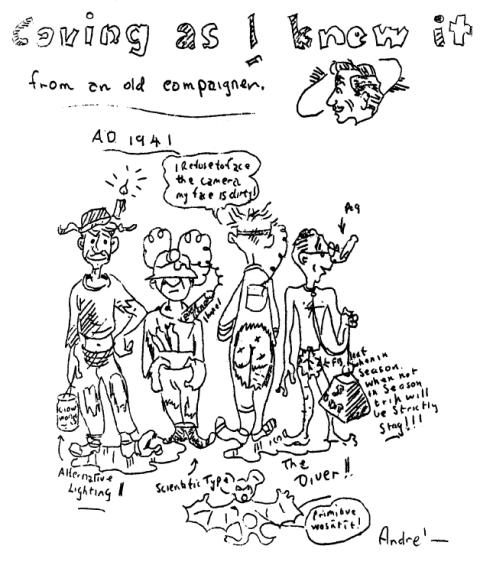 Caving as I knew it
from an old campaigner.
AD 1941
I Refuse to face
the camera
my face is dirty!
Peg
Alternative
Lighting!
Scientific Type!
The
Diver!!
Fig leaf
when in
Season.
When not
in Season
trip will
be Strictly
Stag!!!
Primitive
wasn't it!
André